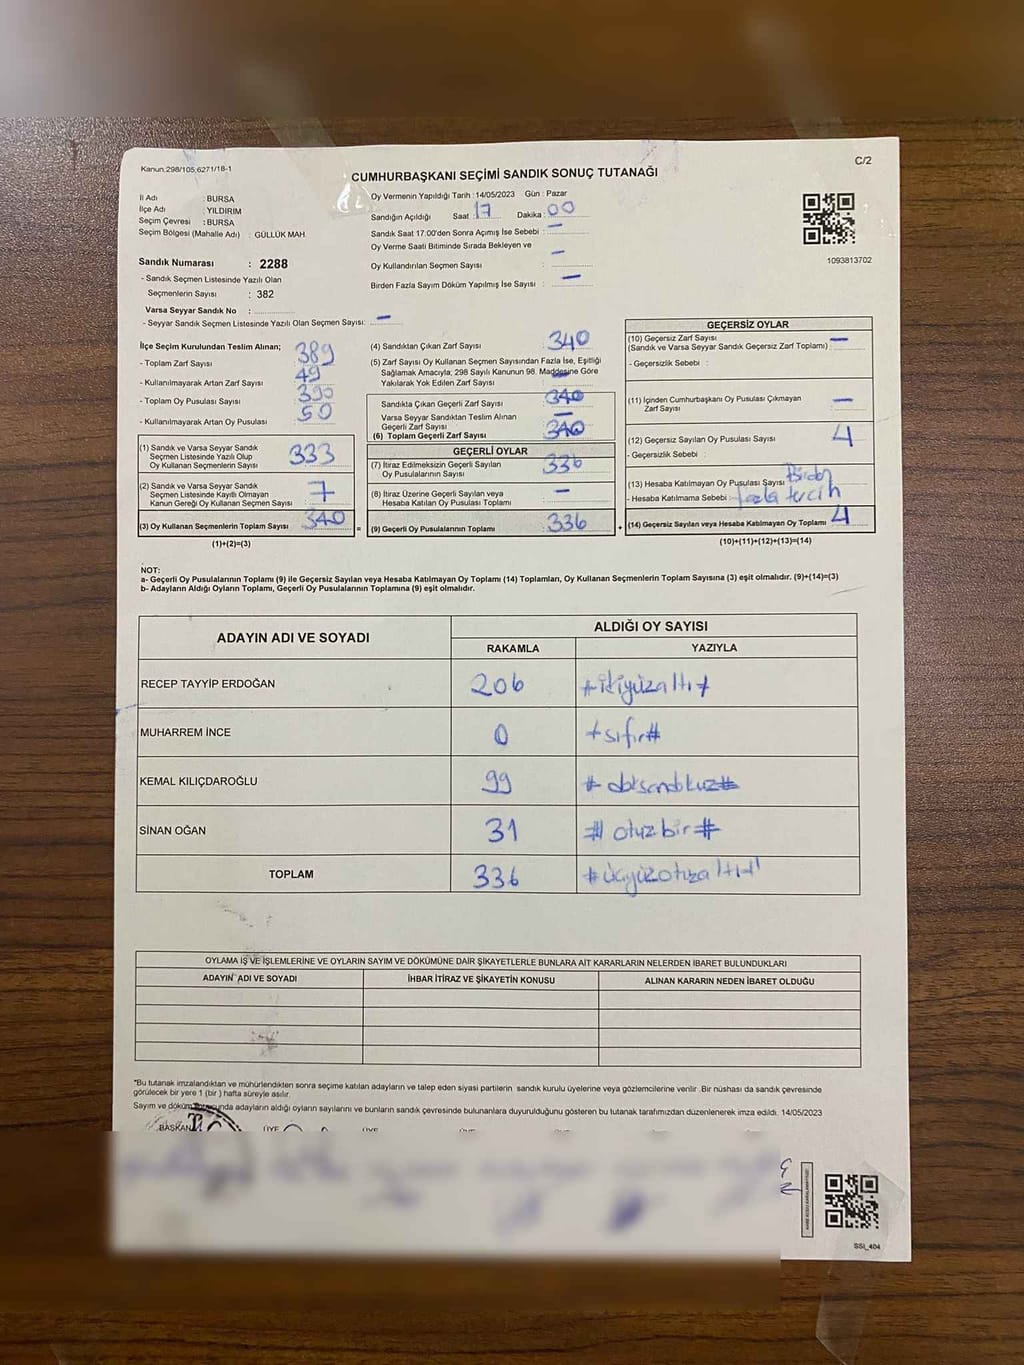 Kanun:298/105,6271/18-1
C/2
CUMHURBAŞKANI SEÇİMİ SANDIK SONUÇ TUTANAĞI
İl Adı : BURSA
İlçe Adı : YILDIRIM
Seçim Çevresi : BURSA
Seçim Bölgesi (Mahalle Adı) : GÜLLÜK MAH.
Oy Vermenin Yapıldığı Tarih : 14/05/2023 Gün : Pazar
Sandığın Açıldığı Saat : 17 Dakika : 00
Sandık Saat 17.00'den Sonra Açımış İse Sebebi : –
Oy Verme Saati Bitiminde Sırada Bekleyen ve
Oy Kullandırılan Seçmen Sayısı : –
Birden Fazla Sayım Döküm Yapılmış İse Sayısı : –
1093813702
Sandık Numarası : 2288
- Sandık Seçmen Listesinde Yazılı Olan
Seçmenlerin Sayısı : 382
Varsa Seyyar Sandık No :
- Seyyar Sandık Seçmen Listesinde Yazılı Olan Seçmen Sayısı: –
İlçe Seçim Kurulundan Teslim Alınan;
- Toplam Zarf Sayısı 389
- Kullanılmayarak Artan Zarf Sayısı 49
- Toplam Oy Pusulası Sayısı 390
- Kullanılmayarak Artan Oy Pusulası 50
(1) Sandık ve Varsa Seyyar Sandık
Seçmen Listesinde Yazılı Olup
Oy Kullanan Seçmenlerin Sayısı 333
(2) Sandık ve Varsa Seyyar Sandık
Seçmen Listesinde Kayıtlı Olmayan
Kanun Gereği Oy Kullanan Seçmen Sayısı 7
(3) Oy Kullanan Seçmenlerin Toplam Sayısı 340
(1)+(2)=(3)
(4) Sandıktan Çıkan Zarf Sayısı 340
(5) Zarf Sayısı Oy Kullanan Seçmen Sayısından Fazla İse, Eşitliği
Sağlamak Amacıyla, 298 Sayılı Kanunun 98. Maddesine Göre
Yakılarak Yok Edilen Zarf Sayısı –
Sandıkta Çıkan Geçerli Zarf Sayısı 340
Varsa Seyyar Sandıktan Teslim Alınan
Geçerli Zarf Sayısı –
(6) Toplam Geçerli Zarf Sayısı 340
GEÇERLİ OYLAR
(7) İtiraz Edilmeksizin Geçerli Sayılan
Oy Pusulalarının Sayısı 336
(8) İtiraz Üzerine Geçerli Sayılan veya
Hesaba Katılan Oy Pusulası Sayısı –
= (9) Geçerli Oy Pusulalarının Toplamı : 336
GEÇERSİZ OYLAR
(10) Geçersiz Zarf Sayısı
(Sandık ve Varsa Seyyar Sandık Geçersiz Zarf Toplamı) –
- Geçersizlik Sebebi :
(11) İçinden Cumhurbaşkanı Oy Pusulası Çıkmayan
Zarf Sayısı –
(12) Geçersiz Sayılan Oy Pusulası Sayısı 4
- Geçersizlik Sebebi :
(13) Hesaba Katılmayan Oy Pusulası Sayısı : Birden
- Hesaba Katılmama Sebebi : fazla tercih
+ (14) Geçersiz Sayılan veya Hesaba Katılmayan Oy Toplamı 4
(10)+(11)+(12)+(13)=(14)
NOT:
a- Geçerli Oy Pusulalarının Toplamı (9) ile Geçersiz Sayılan veya Hesaba Katılmayan Oy Toplamı (14) Toplamları, Oy Kullanan Seçmenlerin Toplam Sayısına (3) eşit olmalıdır. (9)+(14)=(3)
b- Adayların Aldığı Oyların Toplamı, Geçerli Oy Pusulalarının Toplamına (9) eşit olmalıdır.
ADAYIN ADI VE SOYADI ALDIĞI OY SAYISI
RAKAMLA YAZIYLA
RECEP TAYYİP ERDOĞAN 206 #ikiyüzaltı#
MUHARREM İNCE 0 #sıfır#
KEMAL KILIÇDAROĞLU 99 #doksandokuz#
SİNAN OĞAN 31 #otuzbir#
TOPLAM 336 #üçyüzotuzaltı#
OYLAMA İŞ VE İŞLEMLERİNE VE OYLARIN SAYIM VE DÖKÜMÜNE DAİR ŞİKAYETLERLE BUNLARA AİT KARARLARIN NELERDEN İBARET BULUNDUKLARI
ADAYIN ADI VE SOYADI İHBAR İTİRAZ VE ŞİKAYETİN KONUSU ALINAN KARARIN NEDEN İBARET OLDUĞU
*Bu tutanak imzalandıktan ve mühürlendikten sonra seçime katılan adayların ve talep eden siyasi partilerin sandık kurulu üyelerine veya gözlemcilerine verilir. Bir nüshası da sandık çevresinde
görülecek bir yere 1 (bir) hafta süreyle asılır.
Sayım ve döküm sonucunda adayların aldığı oyların sayılarını ve bunların sandık çevresinde bulunanlara duyurulduğunu gösteren bu tutanak tarafımızdan düzenlenerek imza edildi. 14/05/2023
BAŞKAN ÜYE ÜYE
SSİ_404